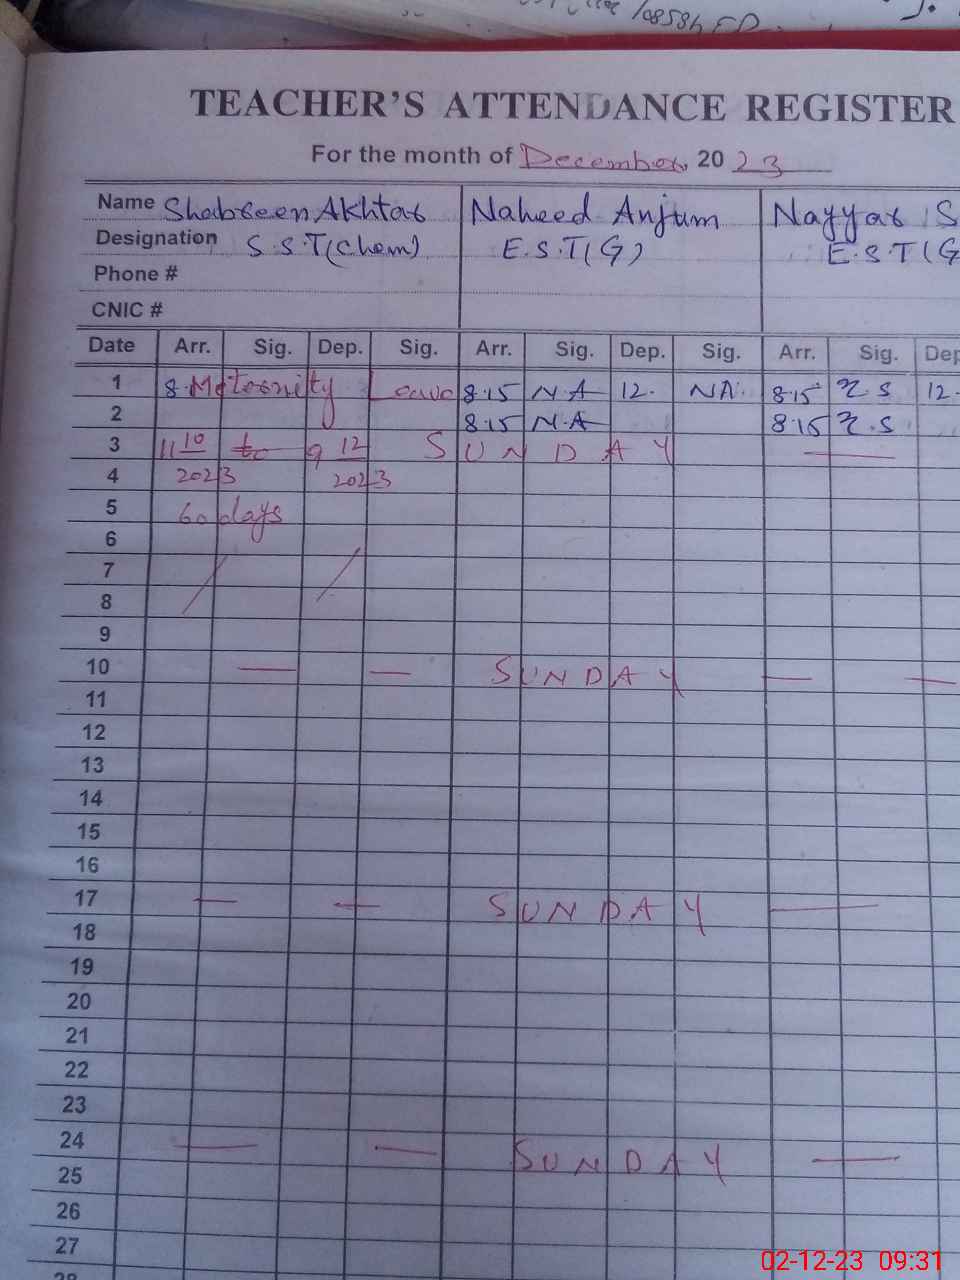 TEACHER'S ATTENDANCE REGISTER
For the month of December, 20 23
Name Shabreen Akhtar Naheed Anjum Nayyar S
Designation S.S.T(Chem) E.S.T(G) E.S.T(G
Phone #
CNIC #
Date Arr. Sig. Dep. Sig. Arr. Sig. Dep. Sig. Arr. Sig. Dep
1 8. Meternity Leave 8.15 N A 12. NA. 8.15 S 12.
2 8.15 N.A 8.15 S
3 11 10 to 9 12 SUNDAY
4 2023 2023
5 60 days
6
7
8
9
10 SUNDAY
11
12
13
14
15
16
17 SUNDAY
18
19
20
21
22
23
24 SUNDAY
25
26
27
28
02-12-23 09:31